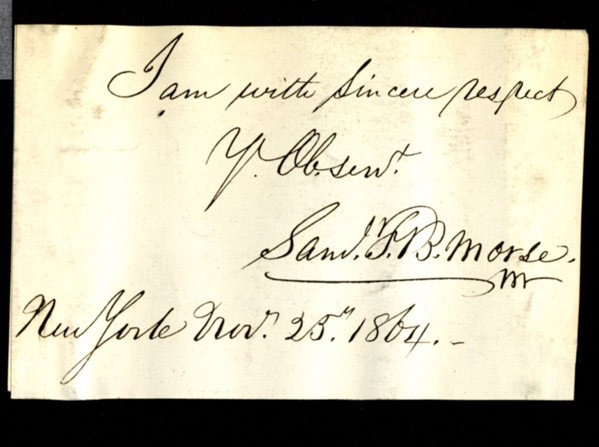 I am with sincere respect
Yr. Ob. servt.
Saml. F. B. Morse.
New York Novr. 25. 1864.-